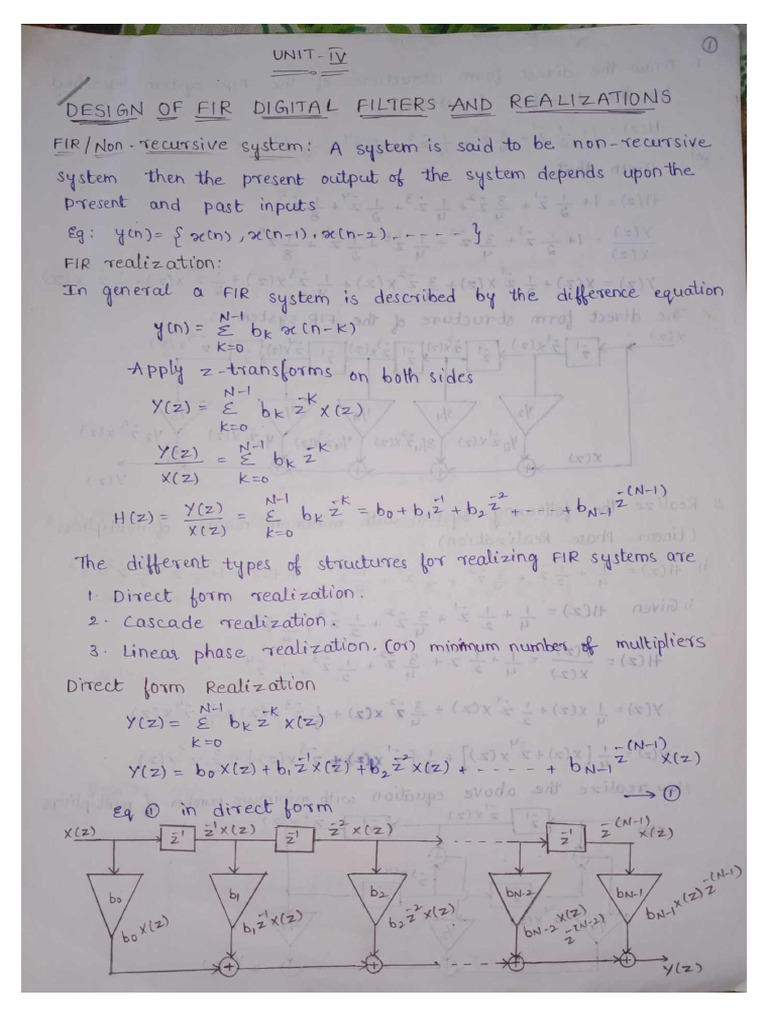 ①
UNIT-IV
DESIGN OF FIR DIGITAL FILTERS AND REALIZATIONS
FIR/Non-recursive system: A system is said to be non-recursive
system then the present output of the system depends upon the
present and past inputs
Eg: y(n) = { x(n), x(n-1), x(n-2) ----- }
FIR realization:
In general a FIR system is described by the difference equation
y(n) = Σ_{K=0}^{N-1} b_K x(n-K)
Apply z-transforms on both sides
Y(z) = Σ_{K=0}^{N-1} b_K z^{-K} X(z)
Y(z)/X(z) = Σ_{K=0}^{N-1} b_K z^{-K}
H(z) = Y(z)/X(z) = Σ_{K=0}^{N-1} b_K z^{-K} = b_0 + b_1 z^{-1} + b_2 z^{-2} + ---- + b_{N-1} z^{-(N-1)}
The different types of structures for realizing FIR systems are
1. Direct form realization.
2. Cascade realization.
3. Linear phase realization. (or) minimum number of multipliers
Direct form Realization
Y(z) = Σ_{K=0}^{N-1} b_K z^{-K} X(z)
Y(z) = b_0 X(z) + b_1 z^{-1} X(z) + b_2 z^{-2} X(z) + ----- + b_{N-1} z^{-(N-1)} X(z)
→ ①
Eq ① in direct form
X(z) z^{-1} z^{-1}X(z) z^{-1} z^{-2}X(z) ---- z^{-1} z^{-(N-1)} X(z)
b_0 b_1 b_2 b_{N-2} b_{N-1}
b_0 X(z) b_1 z^{-1} X(z) b_2 z^{-2} X(z) b_{N-2} X(z) z^{-(N-2)} b_{N-1} X(z) z^{-(N-1)}
+ + ---- + + Y(z)